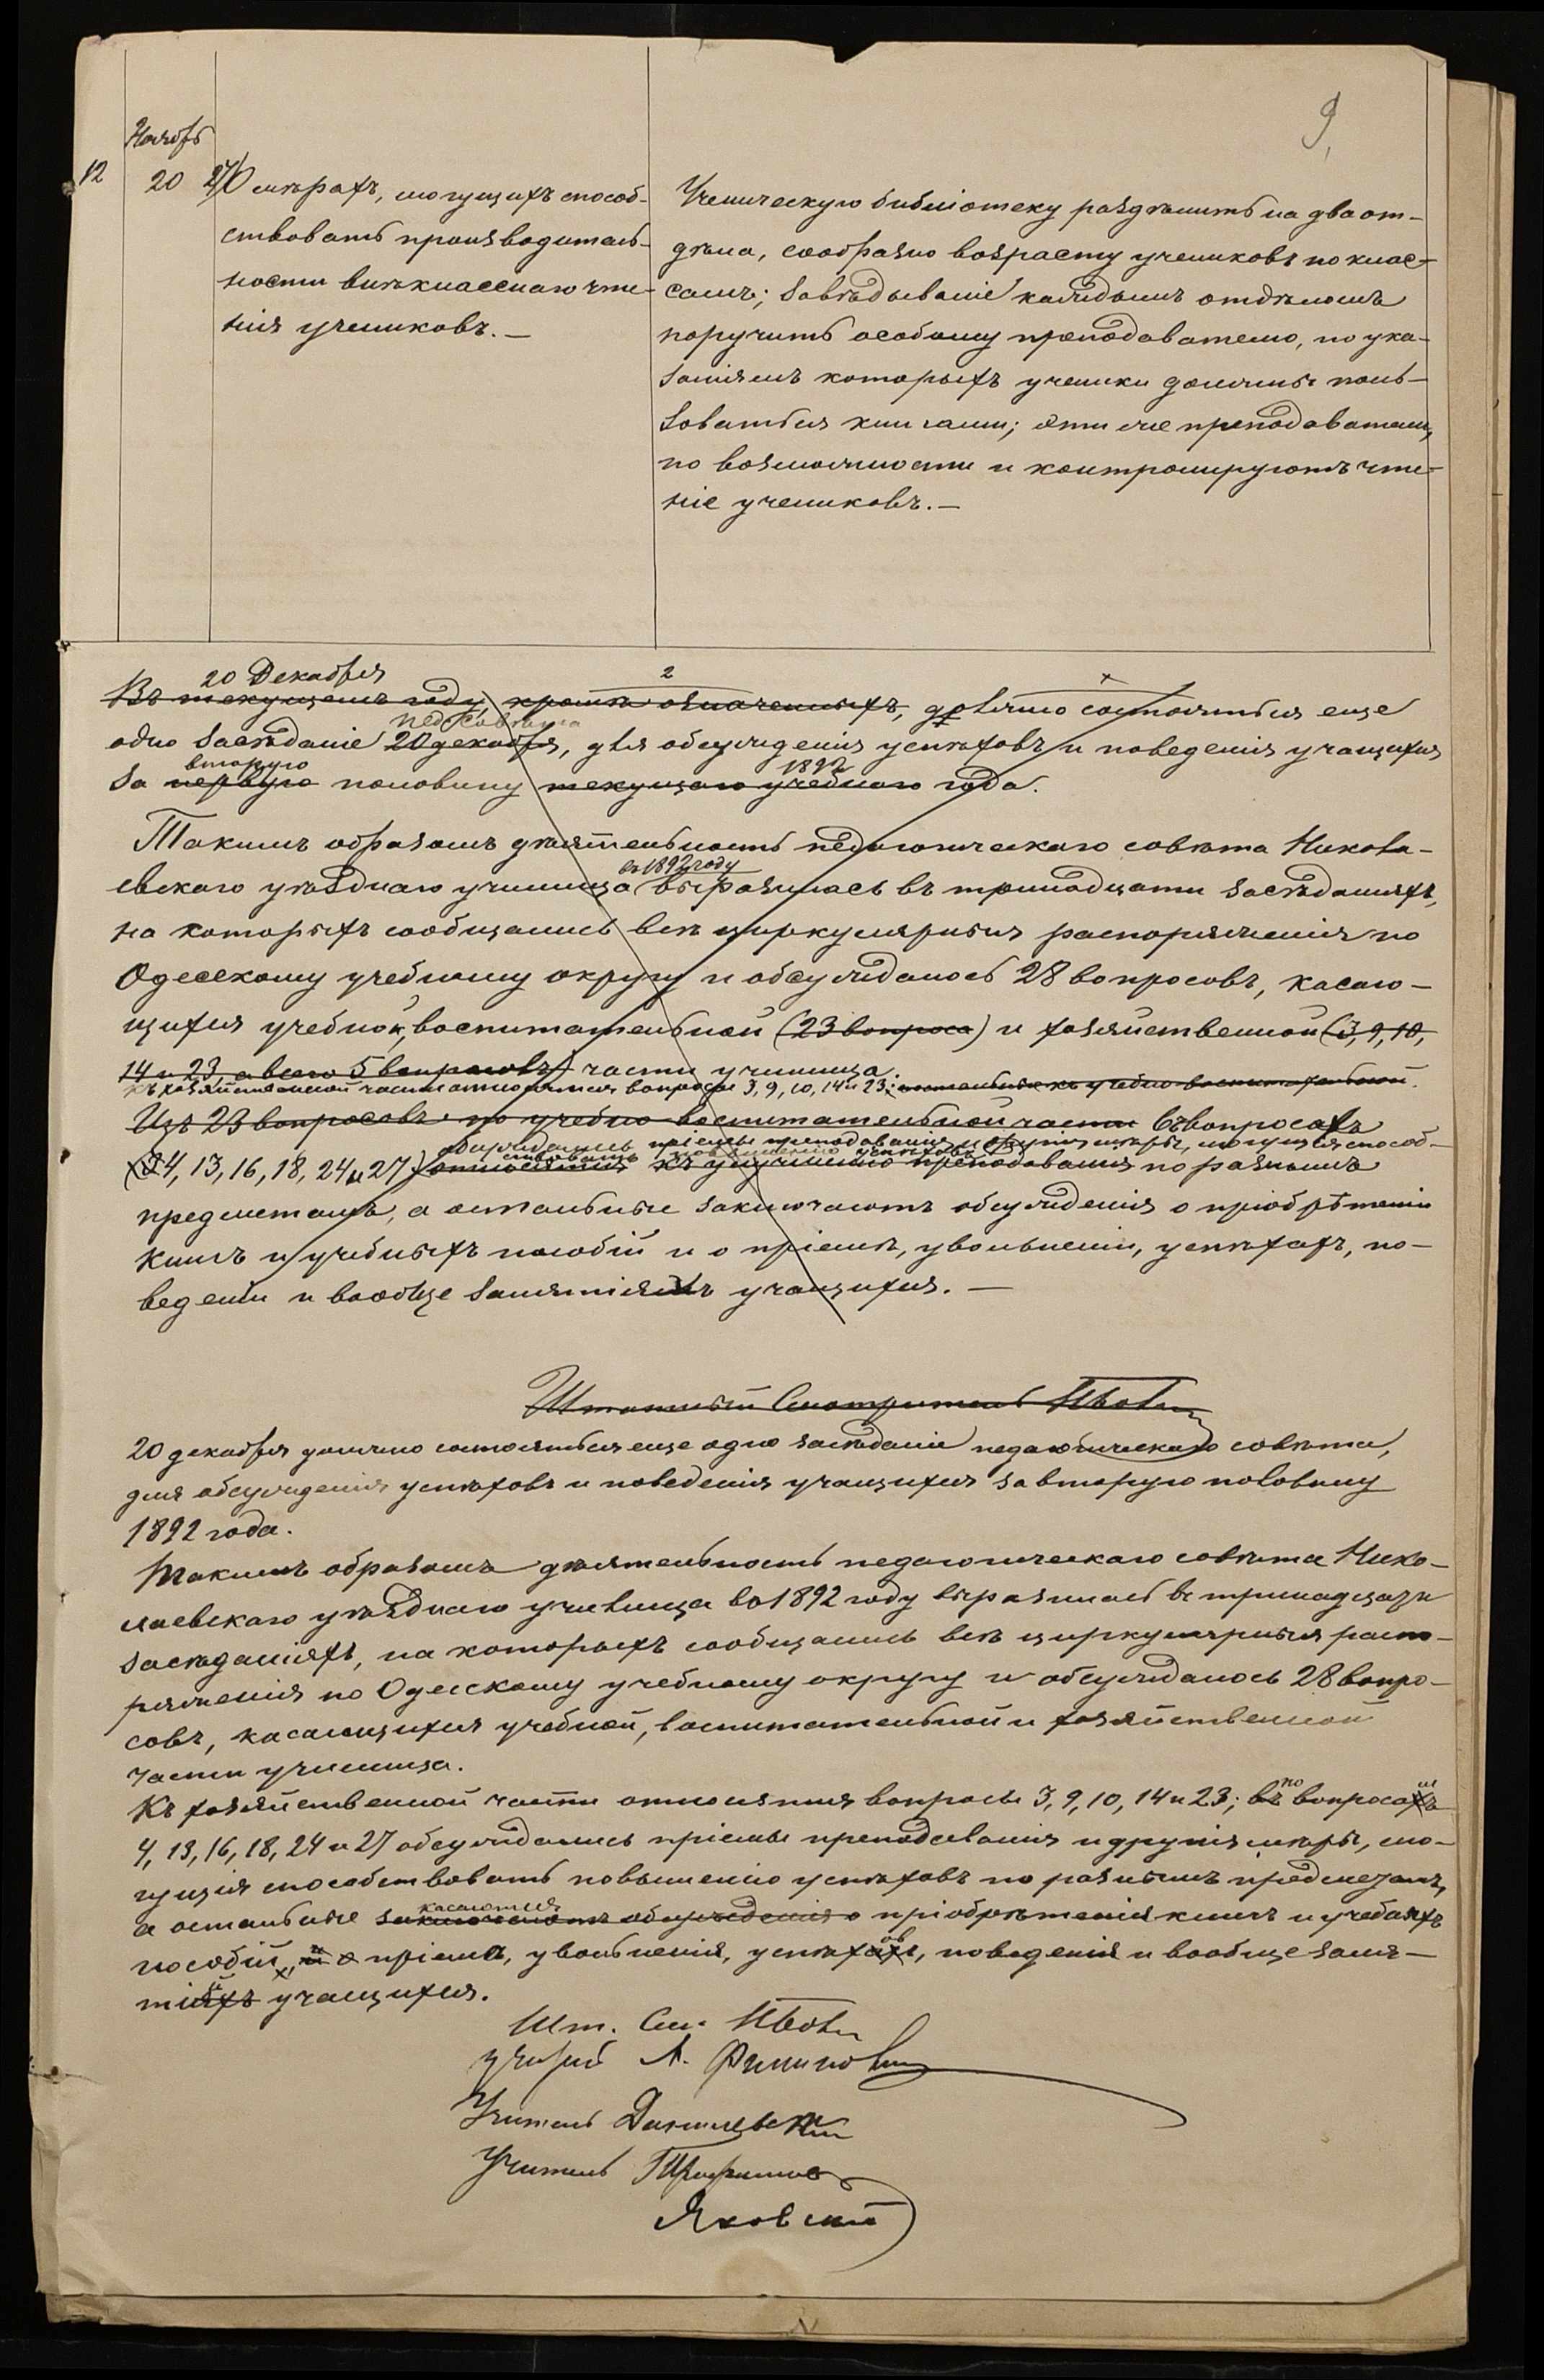 9.
Ноябрь
12
20
27) О мѣрахъ, могущихъ способ-
ствовать производитель-
ности внѣкласснаго чте-
нія учениковъ. —
Ученическую библіотеку раздѣлить на два от-
дѣла, сообразно возрасту учениковъ по клас-
самъ; завѣдываніе каждымъ отдѣломъ
поручить особому преподавателю, по ука-
заніямъ которыхъ ученики должны поль-
зоваться книгами; эти же преподаватели,
по возможности и контролируютъ чте-
ніе учениковъ. —
20 Декабря 2
Въ текущемъ году, кромѣ означенныхъ, должно состояться еще
пед. совѣта
одно засѣданіе 20 декабря, для обсужденія успѣховъ и поведенія учащихся
вторую 1892
за первую половину текущаго учебнаго года.
Такимъ образомъ дѣятельность педагогическаго совѣта Никола-
въ 1892 году
евскаго уѣзднаго училища выразилась въ тринадцати засѣданіяхъ,
на которыхъ сообщались всѣ циркулярныя распоряженія по
Одесскому учебному округу и обсуждалось 28 вопросовъ, касаю-
щихся учебной, воспитательной (23 вопроса) и хозяйственной (3, 9, 10,
14 и 23, а всего 5 вопросовъ) части училища.
Къ хозяйственной части относятся вопросы 3, 9, 10, 14 и 23; остальные къ учебно-воспитательной.
Изъ 23 вопросовъ по учебно воспитательной части въ вопросахъ
обсуждались пріемы преподаванія и другія мѣры, могущія способ-
ствовать повышенію успѣховъ
(4, 13, 16, 18, 24 и 27) относятся къ улучшенію преподаванія по разнымъ
предметамъ, а остальные заключаютъ обсужденія о пріобрѣтеніи
книгъ и учебныхъ пособій и о пріемѣ, увольненіи, успѣхахъ, по-
веденіи и вообще занятіяхъ учащихся. —
Штатный Смотритель
20 декабря должно состояться еще одно засѣданіе педагогическаго совѣта,
для обсужденія успѣховъ и поведенія учащихся за вторую половину
1892 года.
Такимъ образомъ дѣятельность педагогическаго совѣта Нико-
лаевскаго уѣзднаго училища въ 1892 году выразилась въ тринадцати
засѣданіяхъ, на которыхъ сообщались всѣ циркулярныя распо-
ряженія по Одесскому учебному округу и обсуждалось 28 вопро-
совъ, касающихся учебной, воспитательной и хозяйственной
части училища.
по м
Къ хозяйственной части относятся вопросы 3, 9, 10, 14 и 23; въ вопросахъ
4, 13, 16, 18, 24 и 27 обсуждались пріемы преподаванія и другія мѣры, мо-
гущія способствовать повышенію успѣховъ по разнымъ предметамъ,
касаются
а остальные заключаютъ обсужденія о пріобрѣтенія книгъ и учебныхъ
пособій, и о пріема, увольненія, успѣхахъ, поведенія и вообще заня-
тіяхъ учащихся.
Шт. См.
Учитель А. Филипович
Учитель Данилевскій
Учитель Трофимов
Яковскій